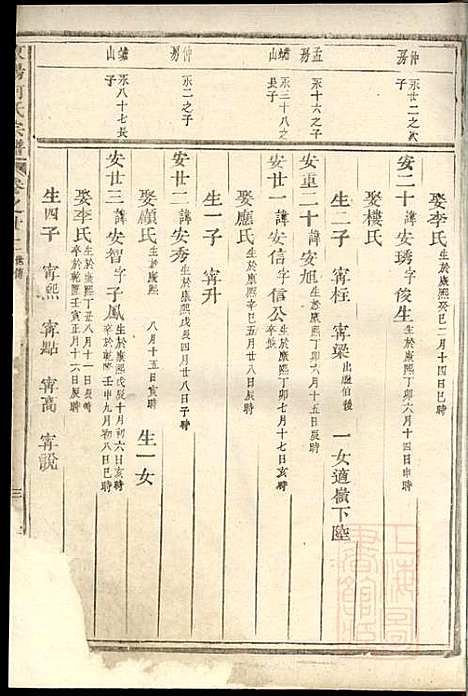 仲房
永廿二之次子
孟房
永十六之子
山蟠
永三十八之長子
仲房
永二之子
山蟠
永八十七長子
娶李氏 生於康熙癸巳二月十四日辰時
安二十 諱安琇 字俊生 生於康熙丁卯六月十四日申時
娶樓氏
生二子 寗枉 寗梁 出繼伯後 一女適嶺下陸
安重二十 諱安旭 生於康熙丁卯六月十五日辰時
安廿一 諱安信 字信公 生於康熙丁卯七月十七日亥時
娶應氏 生於康熙辛巳五月廿八日辰時
生一子 寗升
安廿二 諱安秀 生於康熙戊辰四月廿八日子時
娶顧氏 生於康熙 八月十五日亥時 生一女
安廿三 諱安智 字子鳳 生於康熙戊辰十月初六日亥時 卒於乾隆壬申九月初八日巳時
娶李氏 生於康熙丁丑八月十一日辰時 卒於乾隆壬寅正月十六日辰時
生四子 寗熙 寗點 寗高 寗說
何氏宗譜
卷之廿二
三